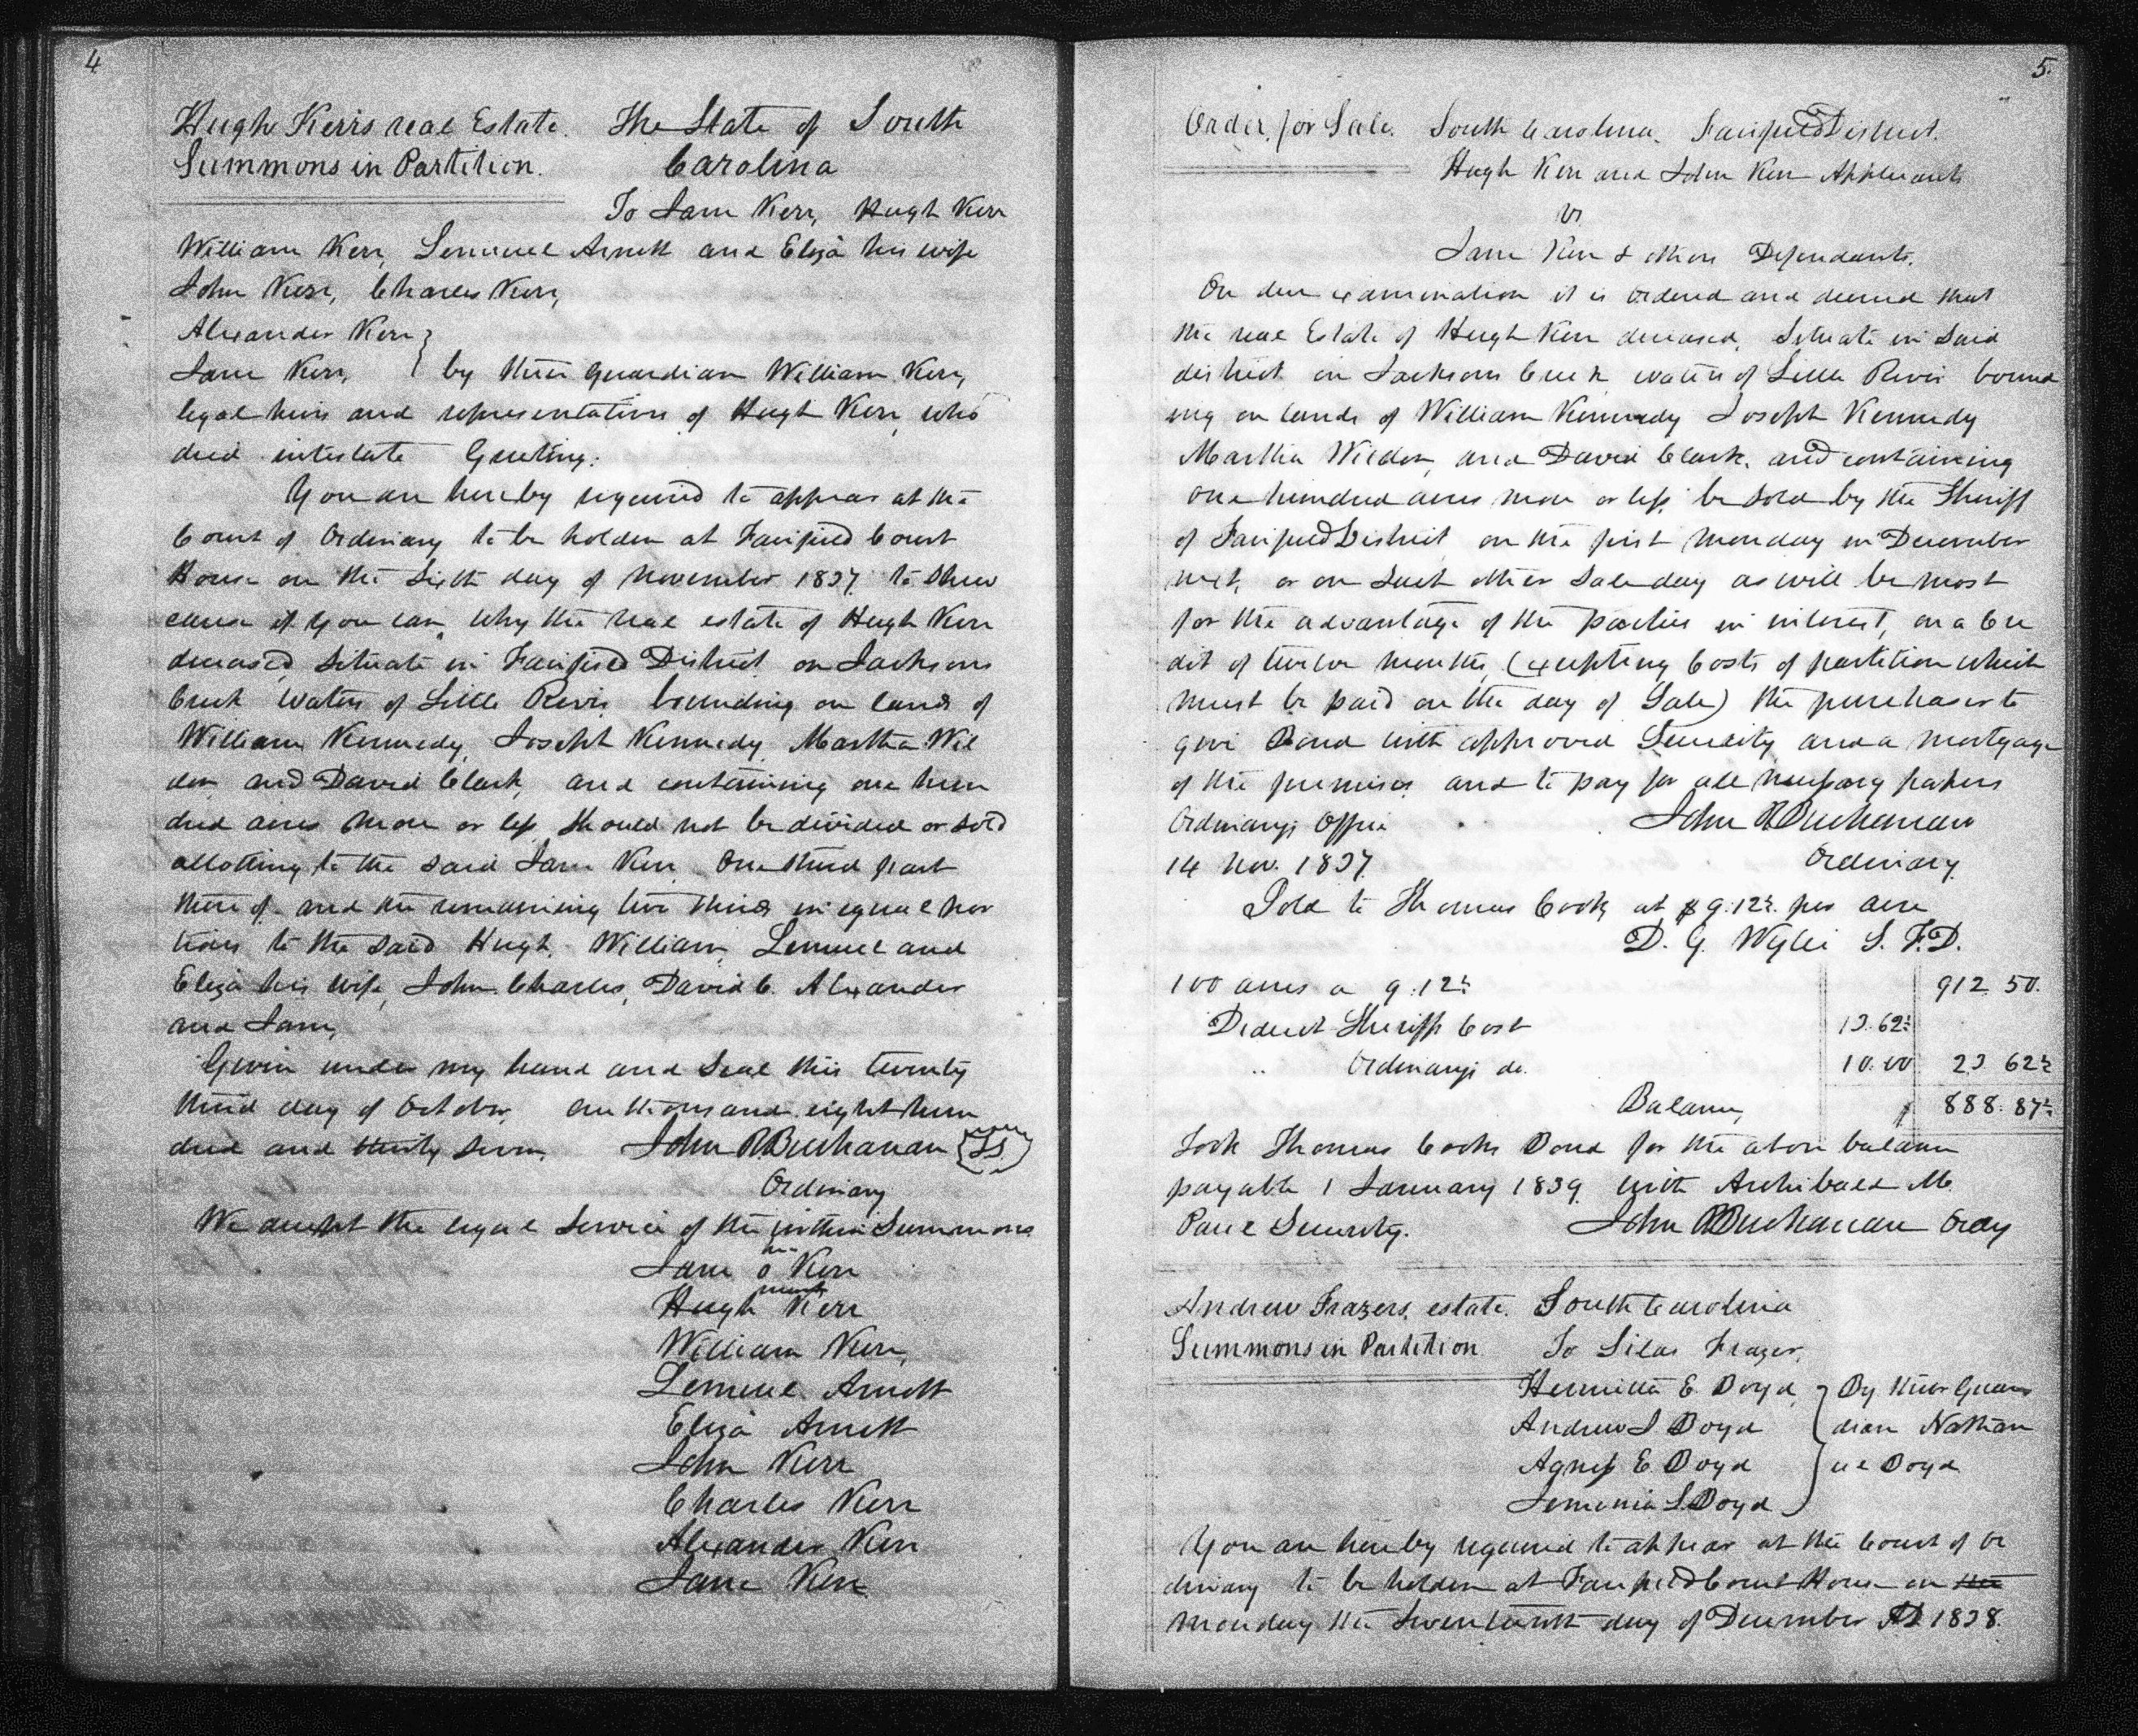 4
Hugh Kerrs real Estate. The State of South
Summons in Partition. Carolina
To Jane Kerr, Hugh Kerr
William Kerr, Lemuel Arnett and Eliza his wife
John Kerr, Charles Kerr,
Alexander Kerr }
Jane Kerr, } by their guardian William Kerr,
legal heirs and representatives of Hugh Kerr, who
died intestate Greeting:
You are hereby required to appear at the
Court of Ordinary to be holden at Fairfield Court
House on the Sixth day of November 1837. to shew
cause if you can, why the real estate of Hugh Kerr
deceased, situate in Fairfield District on Jacksons
Creek waters of Little River bounding on lands of
William Kennedy, Joseph Kennedy Martha Wil
don and David Clark, and containing one hun
dred acres more or less, should not be divided or sold
allotting to the said Jane Kerr One third part
there of. and the remaining two thirds in equal por
tions to the said Hugh, William, Lemuel and
Eliza his wife, John. Charles, David C. Alexander
and Jane,
Given under my hand and Seal this twenty
third day of October, one thousand eight hun
dred and thirty seven. John R Buchanan LS
Ordinary
We accept the legal service of the within Summons
her
Jane o Kerr
mark
Hugh Kerr
William Kerr,
Lemuel Arnett
Eliza Arnett
John Kerr
Charles Kerr
Alexander Kerr
Jane Kerr
5.
Order for Sale. South Carolina. Fairfield District.
Hugh Kerr and John Kerr Applicants
vs
Jane Kerr & others Defendants.
On due examination it is ordered and decreed that
the real Estate of Hugh Kerr deceased, Situate in Said
district on Jacksons Creek waters of Little River bound
ing on lands of William Kennedy Joseph Kennedy
Martha Wildon, and David Clark, and containing
one hundred acres more or less, be sold by the Sheriff
of Fairfield District on the first monday in December
next, or on such other Saleday as will be most
for the advantage of the parties in interest, on a Cre
dit of twelve months, (excepting Costs of partition which
must be paid on the day of Sale) the purchaser to
give Bond with approved Security and a mortgage
of the premises and to pay for all necessary papers
Ordinarys Office John R Buchanan
14 Nov. 1837 Ordinary
Sold to Thomas Cook, at $9.12½ per acre
D. G. Wylie S. F.D.
100 acres a 9.12½ 912 50.
Deduct Sheriffs Cost 13.62½
" Ordinarys do. 10.00 23 62½
Balance, $ 888.87½
Took Thomas Cooks Bond for the above balance
payable 1 January 1839 with Archibald M.
Paul Security. John R Buchanan Ordy
Andrew Frazers, estate. South Carolina
Summons in Partition To Silas Frazer,
Henrietta E Boyd, } By their Guar
Andrew S Boyd dian Nathan
Agness E Boyd iel Boyd
Jemimia S. Boyd
You are hereby required to appear at the Court of Or
dinary to be holden at Fairfield Court House on the
monday the Seventeenth day of December AD 1838.